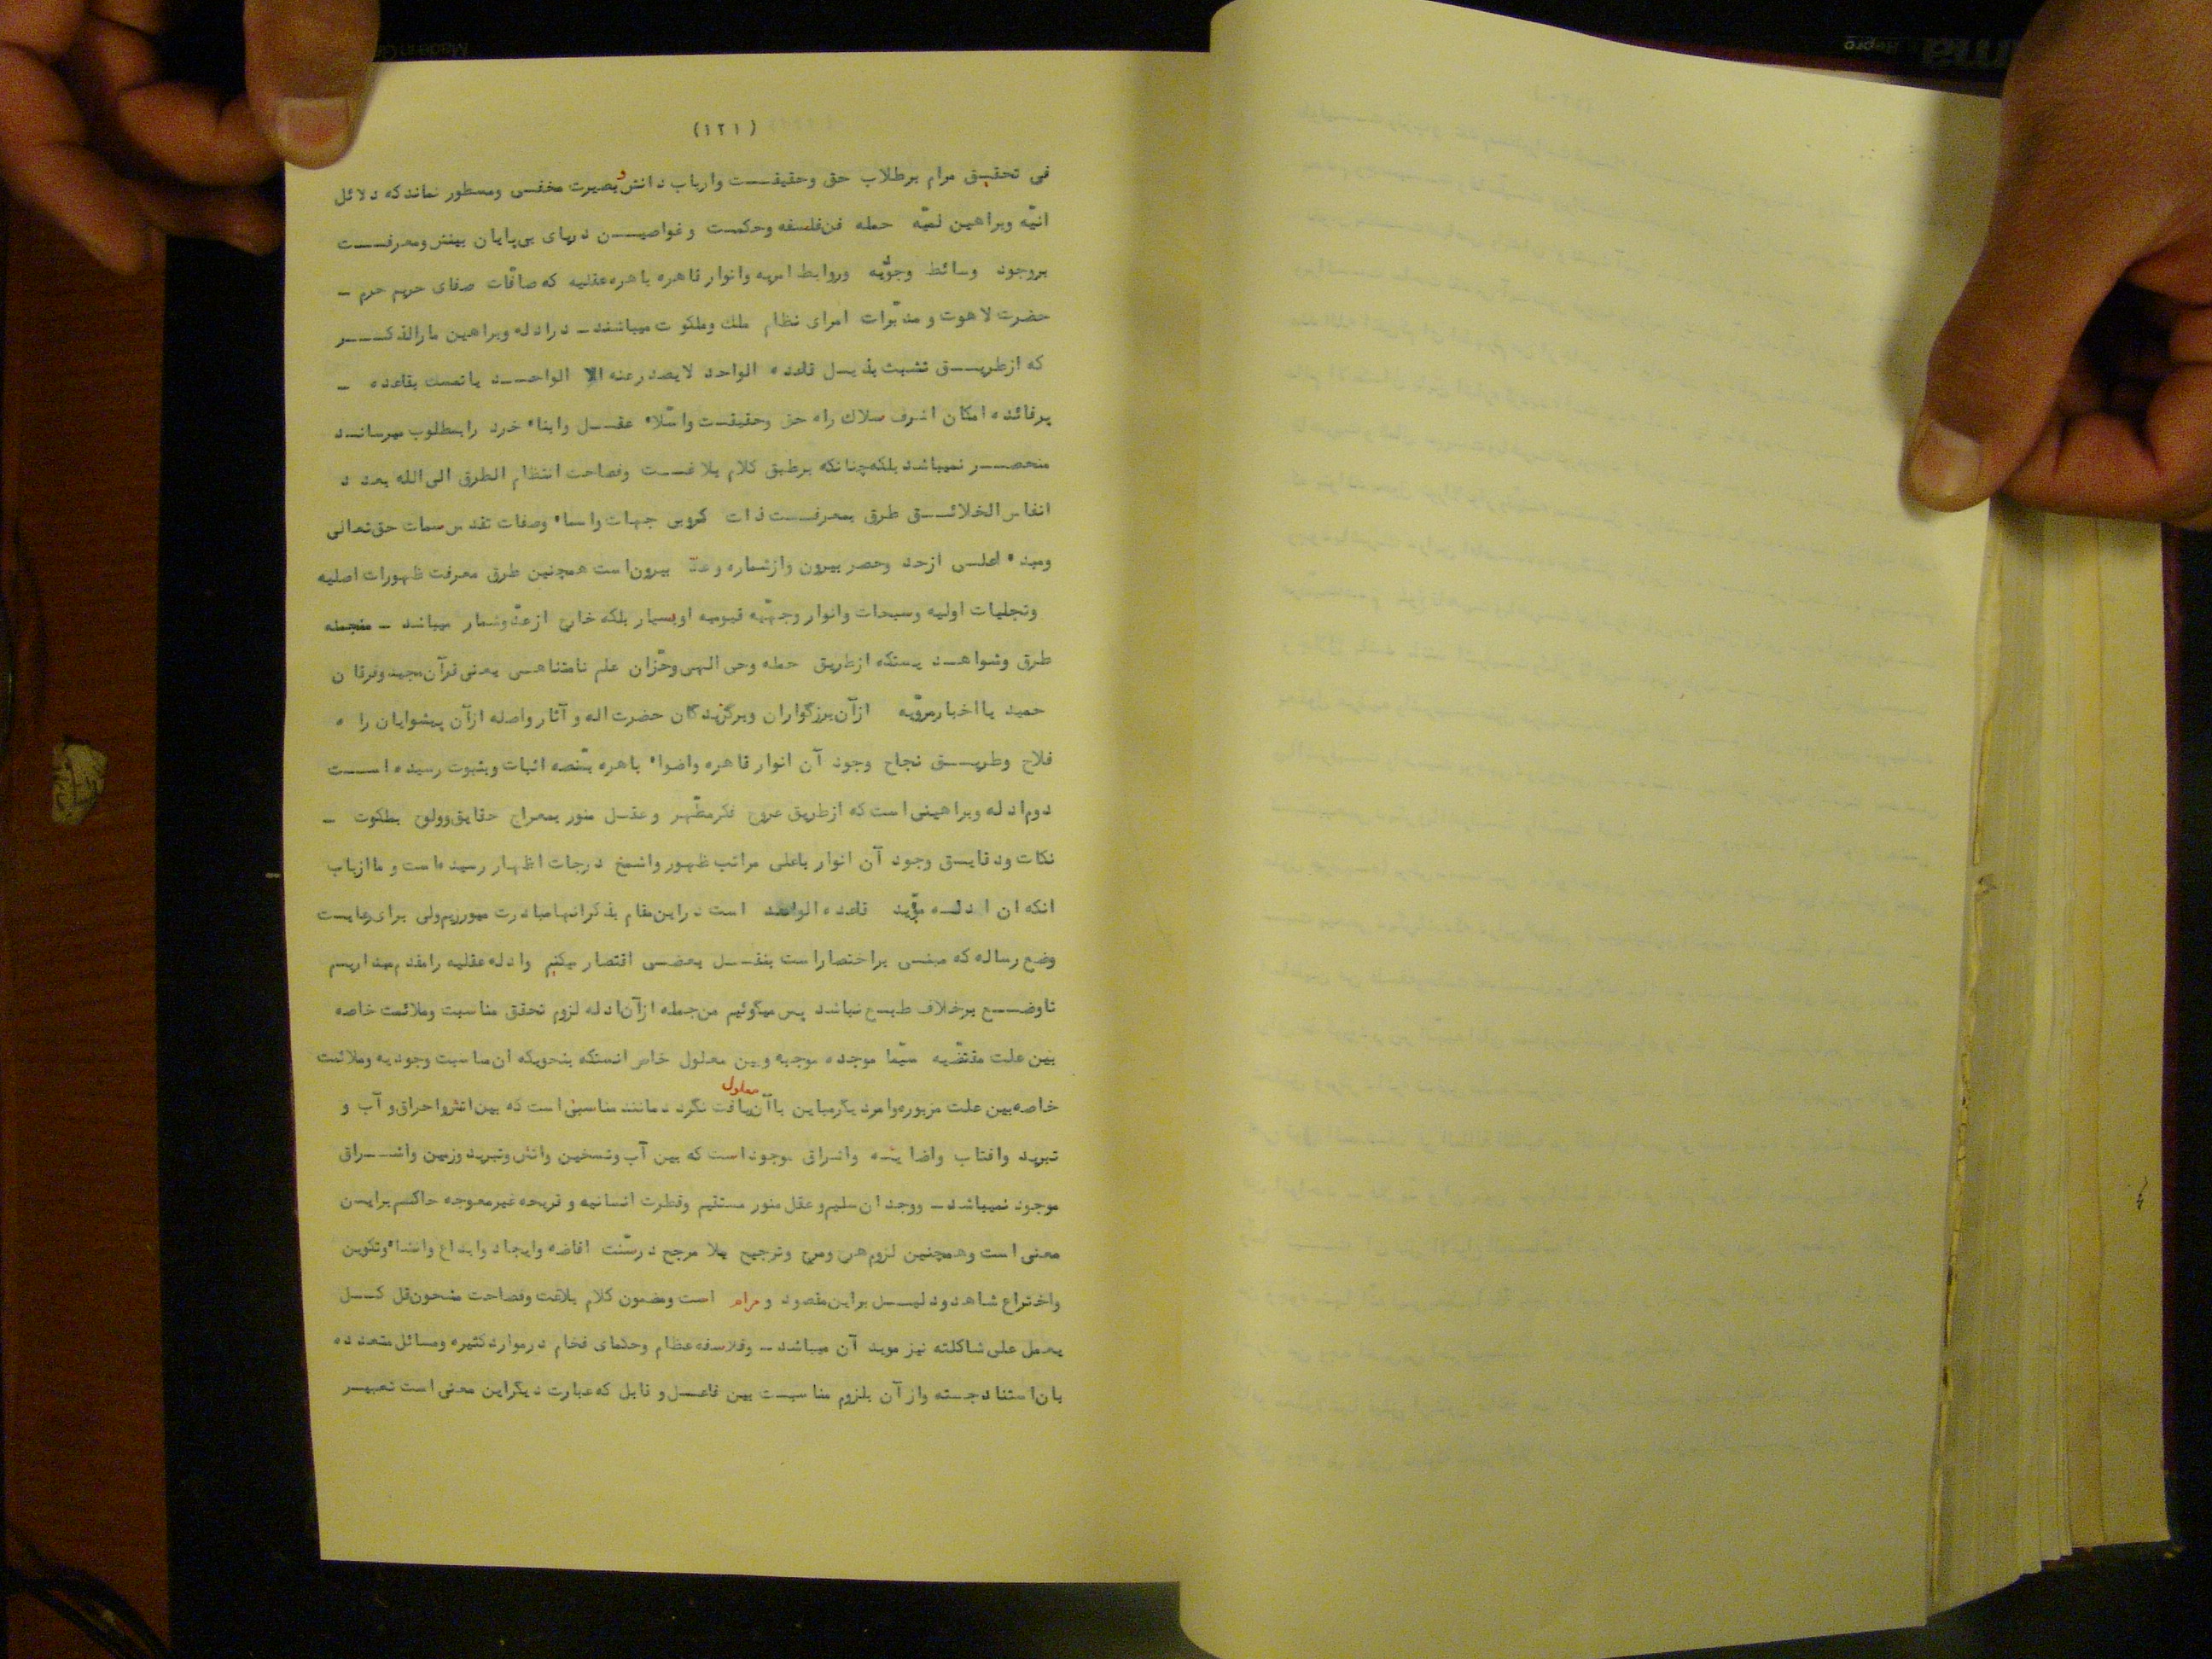 (١٢١)
فی تحقیق مرام برطلاب حق وحقیقت وارباب دانش و بصیرت مخفی ومسطور نماند که دلائل
انیّه وبراهین لمیّه حمله فن فلسفه وحکمت وغواصین دریای بی پایان بینش ومعرفت
بروجود وسائط وجوّیه وروابط امریه وانوار قاهره باهره عقلیه که صافّات صفای حریم حرم –
حضرت لاهوت و مدبّرات امرای نظام ملك وملکوت میباشند – درادله وبراهین مارالذکر
که ازطریق تشبث بذیل قاعده الواحد لایصدر عنه الا الواحد یا تمسك بقاعده –
پرفائده امکان اشرف سلاك راه حق وحقیقت واسّلاء عقل وابناء خرد رابمطلوب میرساند
منحصر نمیباشد بلکه چنانکه برطبق کلام بلاغت وفصاحت انتظام الطرق الی الله بعدد
انفاس الخلائق طرق بمعرفت ذات کروبی جهات واسماء وصفات تقدس سمات حق تعالی
ومبدء اعلی ازحد وحصر بیرون وازشماره وعدّ بیرون است همچنین طرق معرفت ظهورات اصلیه
وتجلیات اولیه وسبحات وانوار وجهیّه قیومیه اوبسیار بلکه خارج ازعدّ وشمار میباشد – منجمله
طرق وشواهد یستکه ازطریق حمله وحی الهی وخّزان علم نامتناهی یعنی قرآن مجید وفرقان
حمید یا اخبار مرویّه ازآن بزرگواران وبرگزیدگان حضرت اله و آثار واصله ازآن پیشوایان راه
فلاح وطریق نجاح وجود آن انوار قاهره واضواء باهره بمنّصه اثبات وبثبوت رسیده است
دوم ادله وبراهینی است که ازطریق عروج فکر مطّهر وعقل منور بمعراج حقایق وولوج بملکوت –
نکات ودقایق وجود آن انوار باعلی مراتب ظهور واشمخ درجات اظهار رسیده است و ما ازباب
انکه ان ادله مؤّید قاعده الواحد است دراین مقام بذکر انها مبادرت میورزیم ولی برای رعایت
وضع رساله که مبنی براختصار است بنقل بعضی اقتصار میکنم وادله عقلیه رامقدم میداریم
تاوضع برخلاف طبع نباشد پس میگوئیم من جمله ازآن ادله لزوم تحقق مناسبت وملائمت خاصه
بین علت مقتضّیه سیّما موجده موجبه وبین معلول خاص انستکه بنحویکه ان مناسبت وجودیه وملائمت
معلول
خاصه بین علت مزبوره وامر دیگر مباین باآن یافت نگردد مانند مناسبتی است که بین اتش واحراق و آب و
تبرید وافتاب واضائه واشراق موجود است که بین آب وتسخین واتش وتبرید وزمین واشراق
موجود نمیباشد – ووجدان سلیم وعقل منور مستقیم وفطرت انسانیه و قریحه غیرمعوجه حاکم براین
معنی است وهمچنین لزوم هرج ومرج وترجیح بلا مرجح درسّنت افاضه وایجاد وابداع وانشاء وتکوین
واختراع شاهد ودلیل براین مقصود و مرام است ومضمون کلام بلاغت وفصاحت مشحون قل کل
یعمل علی شاکلته نیز موید آن میباشد – وفلاسفه عظام وحکمای فخام درموارد کثیره ومسائل متعدده
بان استناد جسته واز آن بلزوم مناسبت بین فاعل و قابل که عبارت دیگر این معنی است تعبیر